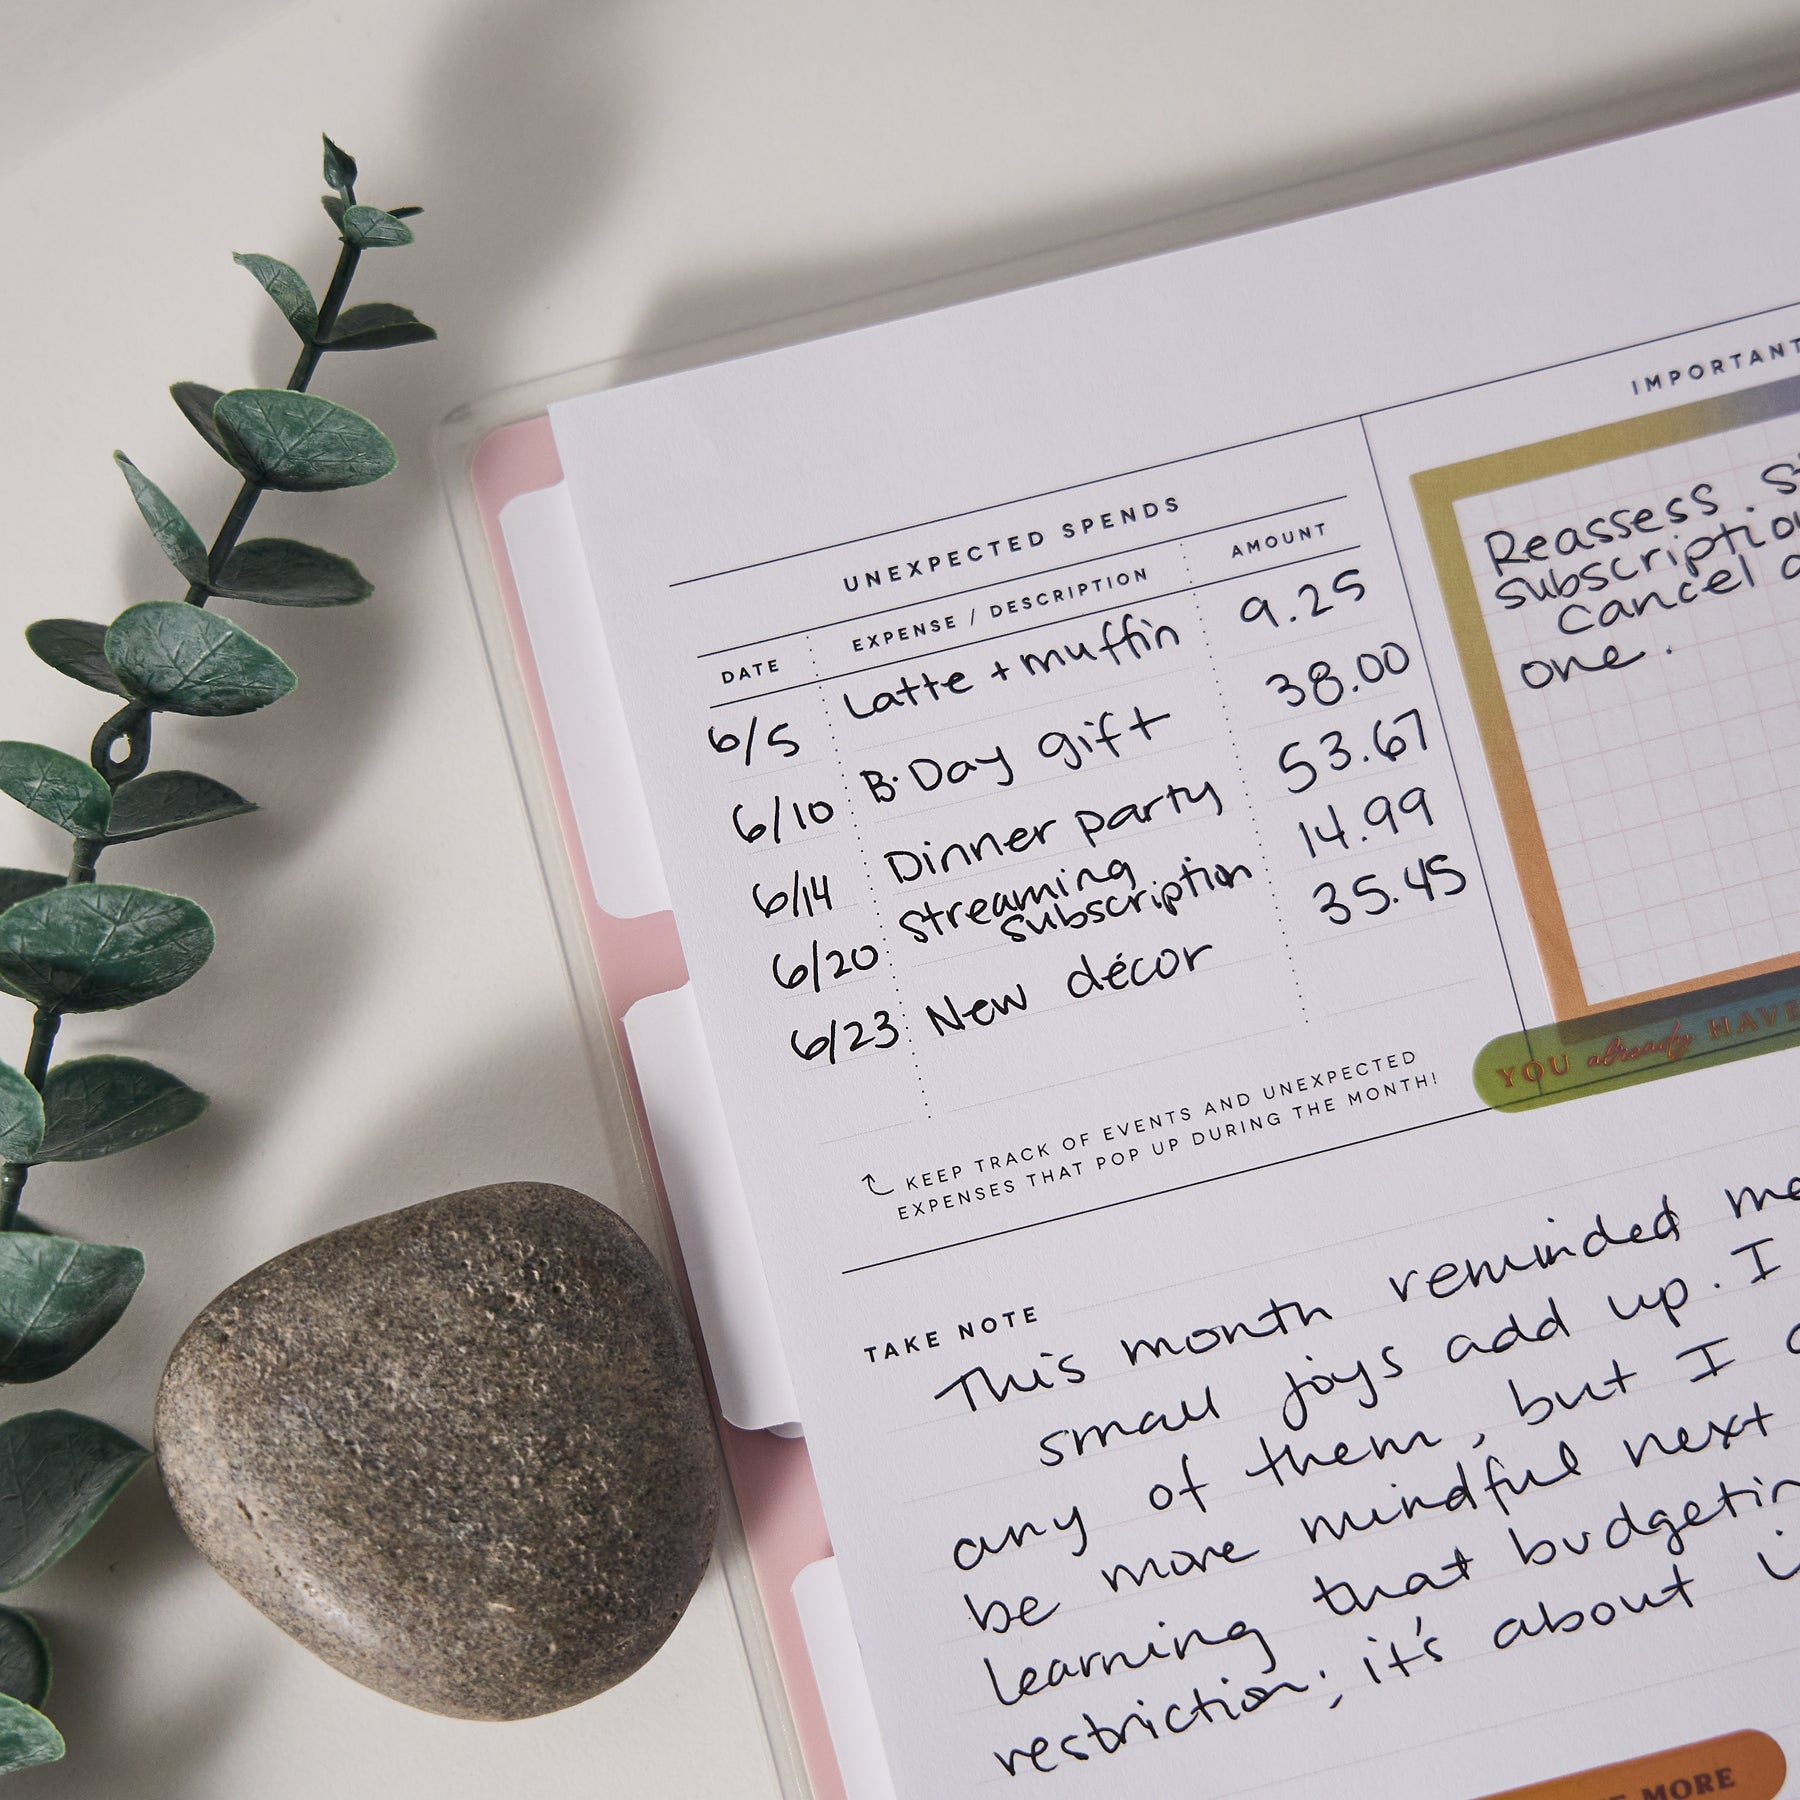 UNEXPECTED SPENDS
DATE EXPENSE / DESCRIPTION AMOUNT
6/5 Latte + muffin 9.25
6/10 B·Day gift 38.00
6/14 Dinner party 53.67
6/20 Streaming subscription 14.99
6/23 New décor 35.45
↖ KEEP TRACK OF EVENTS AND UNEXPECTED
EXPENSES THAT POP UP DURING THE MONTH!
IMPORTANT
Reassess
subscription
Cancel
one.
YOU already HAVE
TAKE NOTE
This month reminded
small joys add up. I
any of them, but I
be more mindful next
learning that budgeting
restriction; it's about
MORE